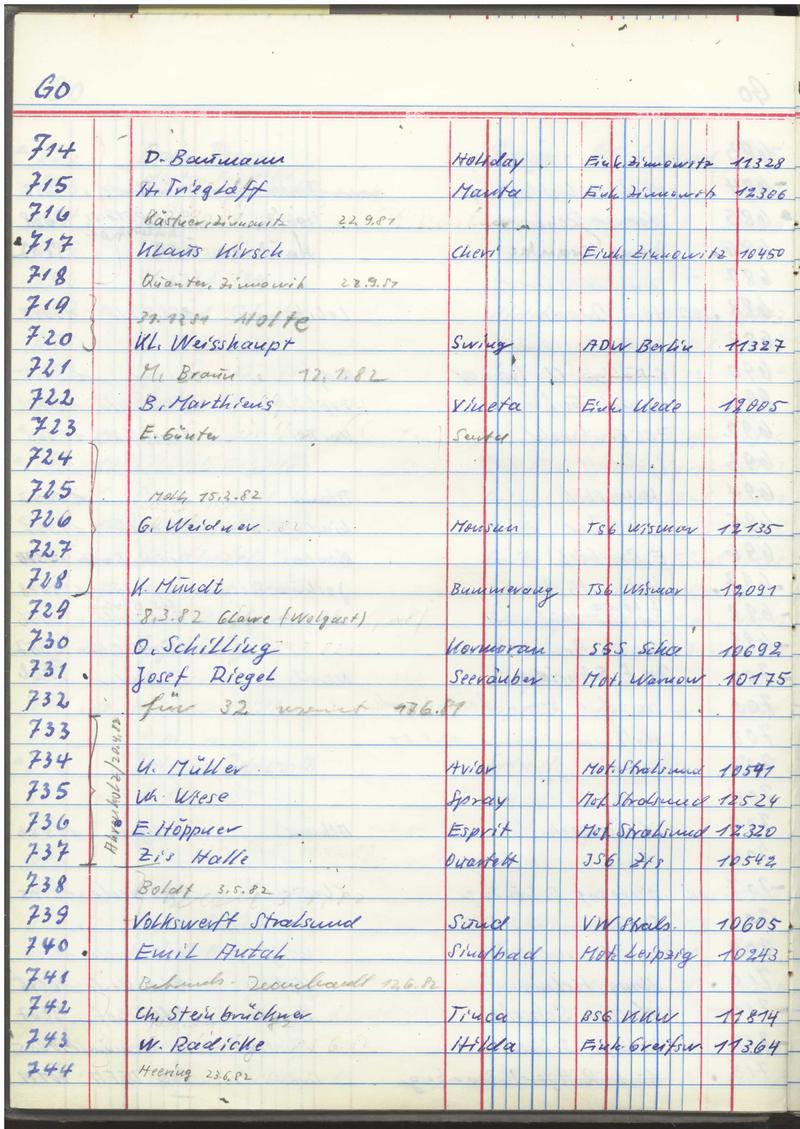 GO
714 D. Baumann Holiday Eink. Zinnowitz 11328
715 H. Trieglaff Manta Eink. Zinnowitz 12306
716 Kästner, Zinnowitz 22.9.81
717 Klaus Kirsch Cheri Eink. Zinnowitz 10450
718 Quanter, Zinnowitz 22.9.81
719 31.12.81 Holte
720 Kl. Weisshaupt Swing ADW Berlin 11327
721 M. Braun 12.1.82
722 B. Marthiens Vineta Eink. Uede 12005
723 E. Günter
724
725 15.2.82
726 G. Weidner Monsun TSG Wismar 12135
727
728 K. Mundt Bummerang TSG Wismar 12091
729 8.3.82 Glawe (Wolgast)
730 O. Schilling Kormoran SSS 10692
731 Josef Riegel Seeräuber Mot. Warnow 10175
732 für 32
733
Ahrenholz/20.4.82
734 U. Müller Avior Mot. Stralsund 10541
735 Wiese Spray Mot. Stralsund 12524
736 E. Höppner Esprit Mot. Stralsund 12320
737 Zis Halle Quartett JSG Zis 10542
738 Boldt 3.5.82
739 Volkswerft Stralsund Sund VW Strals. 10605
740 Emil Antah Sindbad Mot. Leipzig 10243
741 12.6.82
742 Ch. Steinbrückner Tinca BSG KKW 11814
743 W. Radicke Hilda Eink. Greifsw. 11364
744 Heering 23.6.82